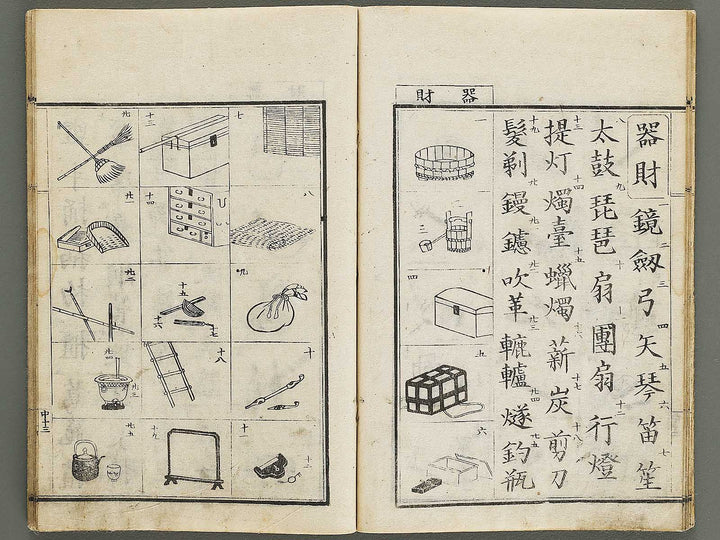 器財
器財 鏡 劔 弓 矢 琴 笛 笙
一 二 三 四 五 六 七
太鼓 琵琶 扇 團扇 行燈
八 九 十 十二
提灯 燭臺 蠟燭 薪 炭 剪刀
十三 十四 十五 十六 十七 十八
髪剃 鏝 鑢 吹革 轆轤 燧 釣瓶
十九 廿 廿三 廿四 廿五
一
二
三
四
五
六
七
八
九
十
十一
十二
十三
十四
十五
十六
十七
十八
十九
廿
廿一
廿二
廿三
廿四
廿五
中 十三